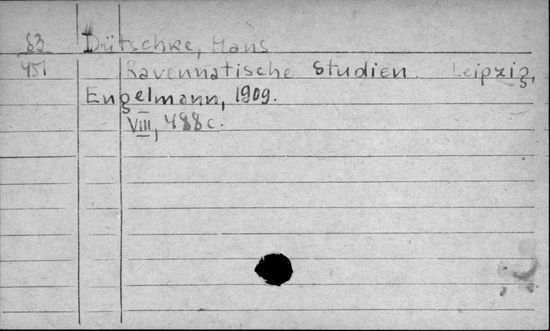 83 Dütschke, Hans
451 Ravennatische Studien. Leipzig,
Engelmann, 1909.
VIII, 488 c.